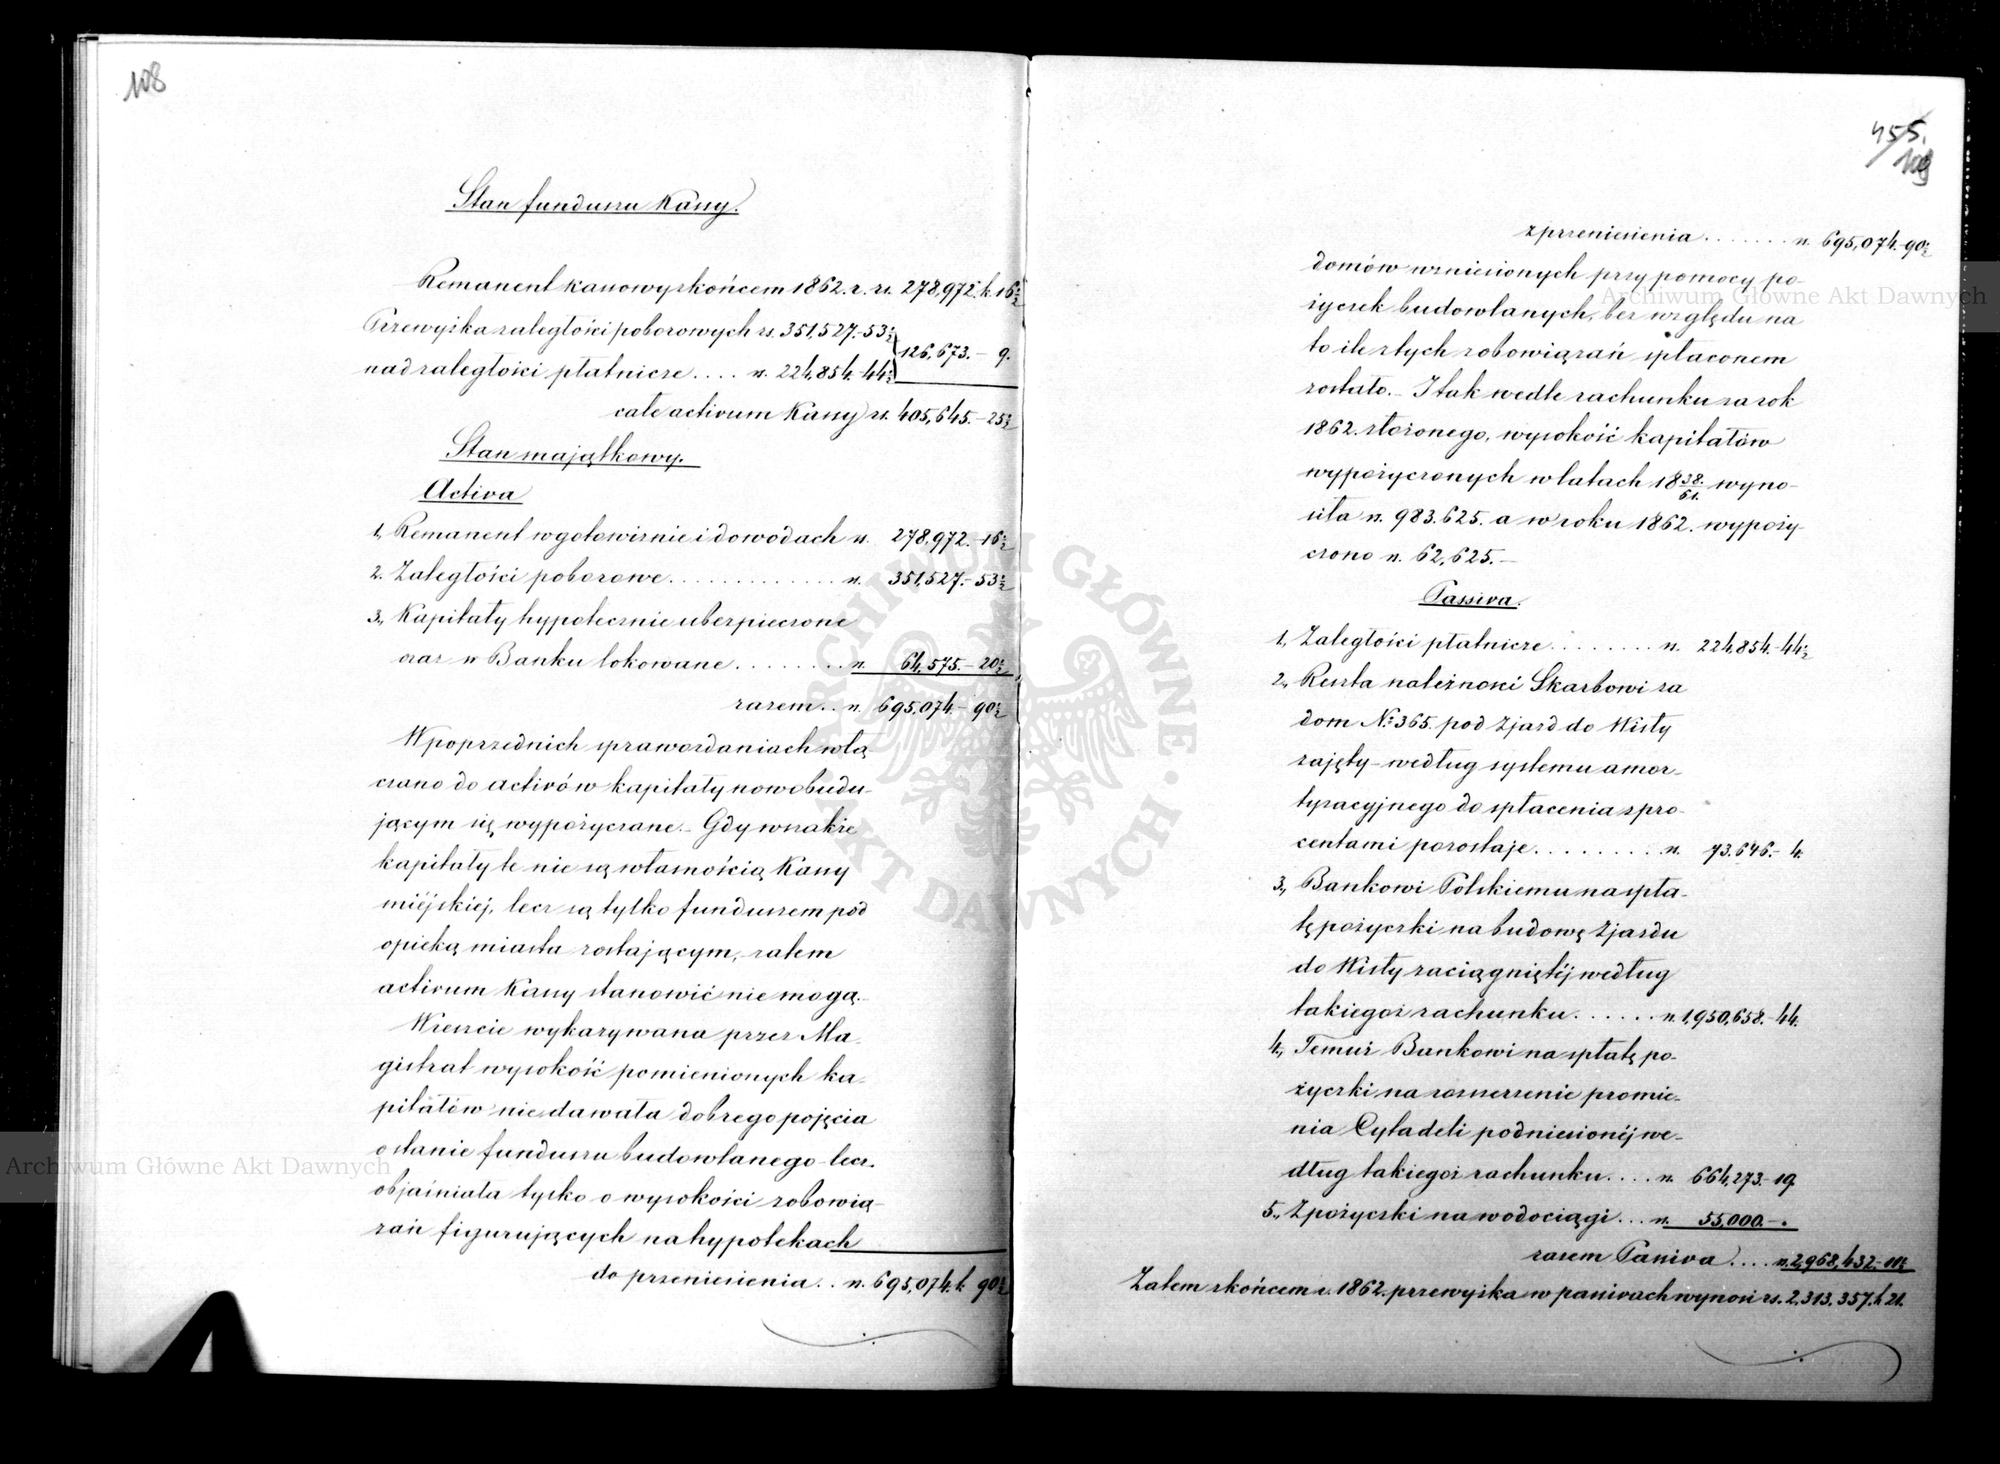 108
Stan funduszu Kassy.
Remanent kassowy z końcem 1862. r. rs. 278,972. k. 16½
Przewyżka zaległości poborowych rs. 351,527.-53½
126,673. - 9.
nad zaległości płatnicze .... rs. 224,854.-44½
całe activum Kassy rs. 405,645.-25½
Stan majątkowy.
Activa
1, Remanent w gotowiznie i dowodach rs. 278,972.-16½
2. Zaległości poborowe.............. rs. 351,527.-53½
3., Kapitały hypotecznie ubezpieczone
oraz w Banku lokowane ........ rs. 64,575.-20½
razem.. rs. 695,074.-90½
W poprzednich sprawozdaniach włą-
czano do activów kapitały nowobudu-
jącym się wypożyczane.- Gdy wszakże
kapitały te nie są własnością Kassy
miejskiej, lecz są tylko funduszem pod
opieką miasta zostającym, zatem
activum Kassy stanowić nie mogą.-
Wreszcie wykazywana przez Ma-
gistrat wysokość pomienionych ka-
pitałów nie dawała dobrego pojęcia
o stanie funduszu budowlanego lecz
objaśniała tylko o wysokości zobowią-
zań figurujących na hypotekach
do przeniesienia.. rs. 695,074. k. 90½
455.
109
z przeniesienia ....... rs. 695,074.-90½
domów wzniesionych przy pomocy po-
życzek budowlanych, bez względu na
to ile z tych zobowiązań spłaconem
zostało.- I tak wedle rachunku za rok
1862. złożonego, wysokość kapitałów
wypożyczonych w latach 1838/61. wyno-
siła rs. 983.625. a w roku 1862. wypoży-
czono rs. 62,625.-
Passiva.
1, Zaległości płatnicze ........ rs. 224,854.-44½
2., Reszta należności Skarbowi za
dom No 365. pod Zjazd do Wisły
zajęty - według systemu amor-
tyzacyjnego do spłacenia z pro-
centami pozostaje ......... rs. 73.646.- 4.
3., Bankowi Polskiemu na spła-
tę pożyczki na budowę Zjazdu
do Wisły zaciągniętéj według
takiegoż rachunku ...... rs. 1,950,658.-44.
4., Temuż Bankowi na spłatę po-
życzki na rozszerzenie promie-
nia Cytadeli podniesionéj we-
dług takiegoż rachunku.... rs. 664,273.-19.
5., Z pożyczki na wodociągi ... rs. 55,000.-.
razem Passiva .... rs. 2,968,432.-11½
Zatem z końcem r. 1862. przewyżka w passivach wynosi rs. 2,313,357. k 21.
Archiwum Główne Akt Dawnych
Archiwum Główne Akt Dawnych
ARCHIWUM GŁÓWNE · AKT DAWNYCH ·